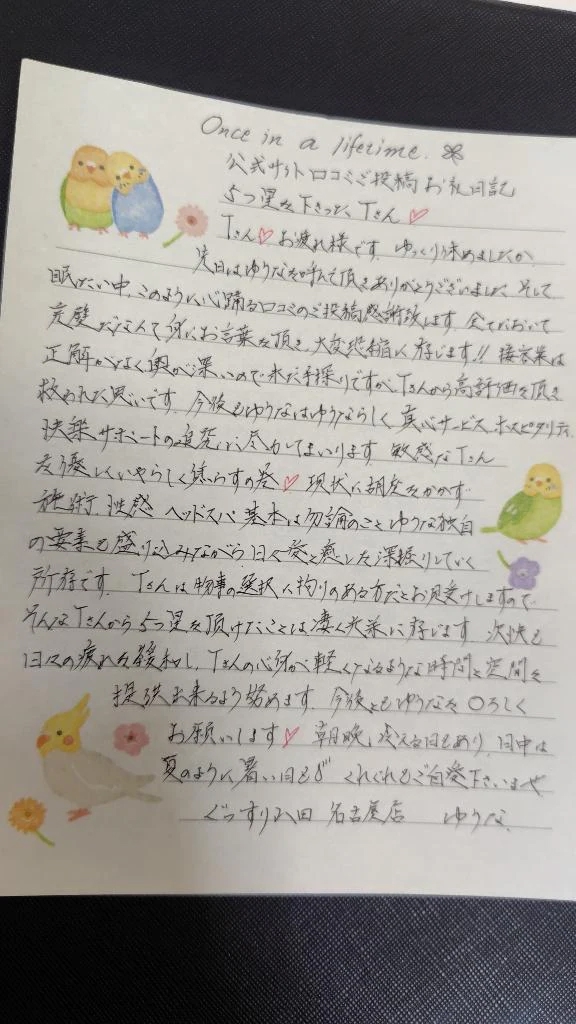 Once in a lifetime.
公式サイト口コミご投稿 お礼日記
5つ星を下さった Tさん♡
Tさん♡お疲れ様です。ゆっくり休めましたか。
先日はゆうなを呼んで頂きありがとうございました。そして
眠たい中、このように心踊る口コミのご投稿感謝致します。全てにおいて
完璧だなんて 身にお言葉を頂き、大変恐縮に存じます!! 接客業は
正解がなく奥が深いので未だ手探りですが、Tさんから高評価を頂き
救われた思いです。今後もゆうなはゆうならしく真心サービス、ホスピタリティ、
快楽サポートの追究に尽力してまいります。敏感なTさん
を優しくいやらしく焦らすの巻♡ 現状に胡座をかかず
施術、性感、ヘッドスパ 基本は勿論のこと ゆうな独自
の要素も盛り込みながら日々愛と癒しを深掘りしていく
所存です。Tさんは物事の選択に拘りのある方だとお見受けしますので、
そんなTさんから5つ星を頂けたことは凄く光栄に存じます。次回も
日々の疲れを緩和し、Tさんの心身が軽くなるような時間と空間を
提供出来るよう努めます。今後ともゆうなを〇ろしく
お願いします♡ 朝晩、冷える日もあり、日中は
夏のように暑い日も… くれぐれもご自愛下さいませ
ぐっすり山田 名古屋店 ゆうな